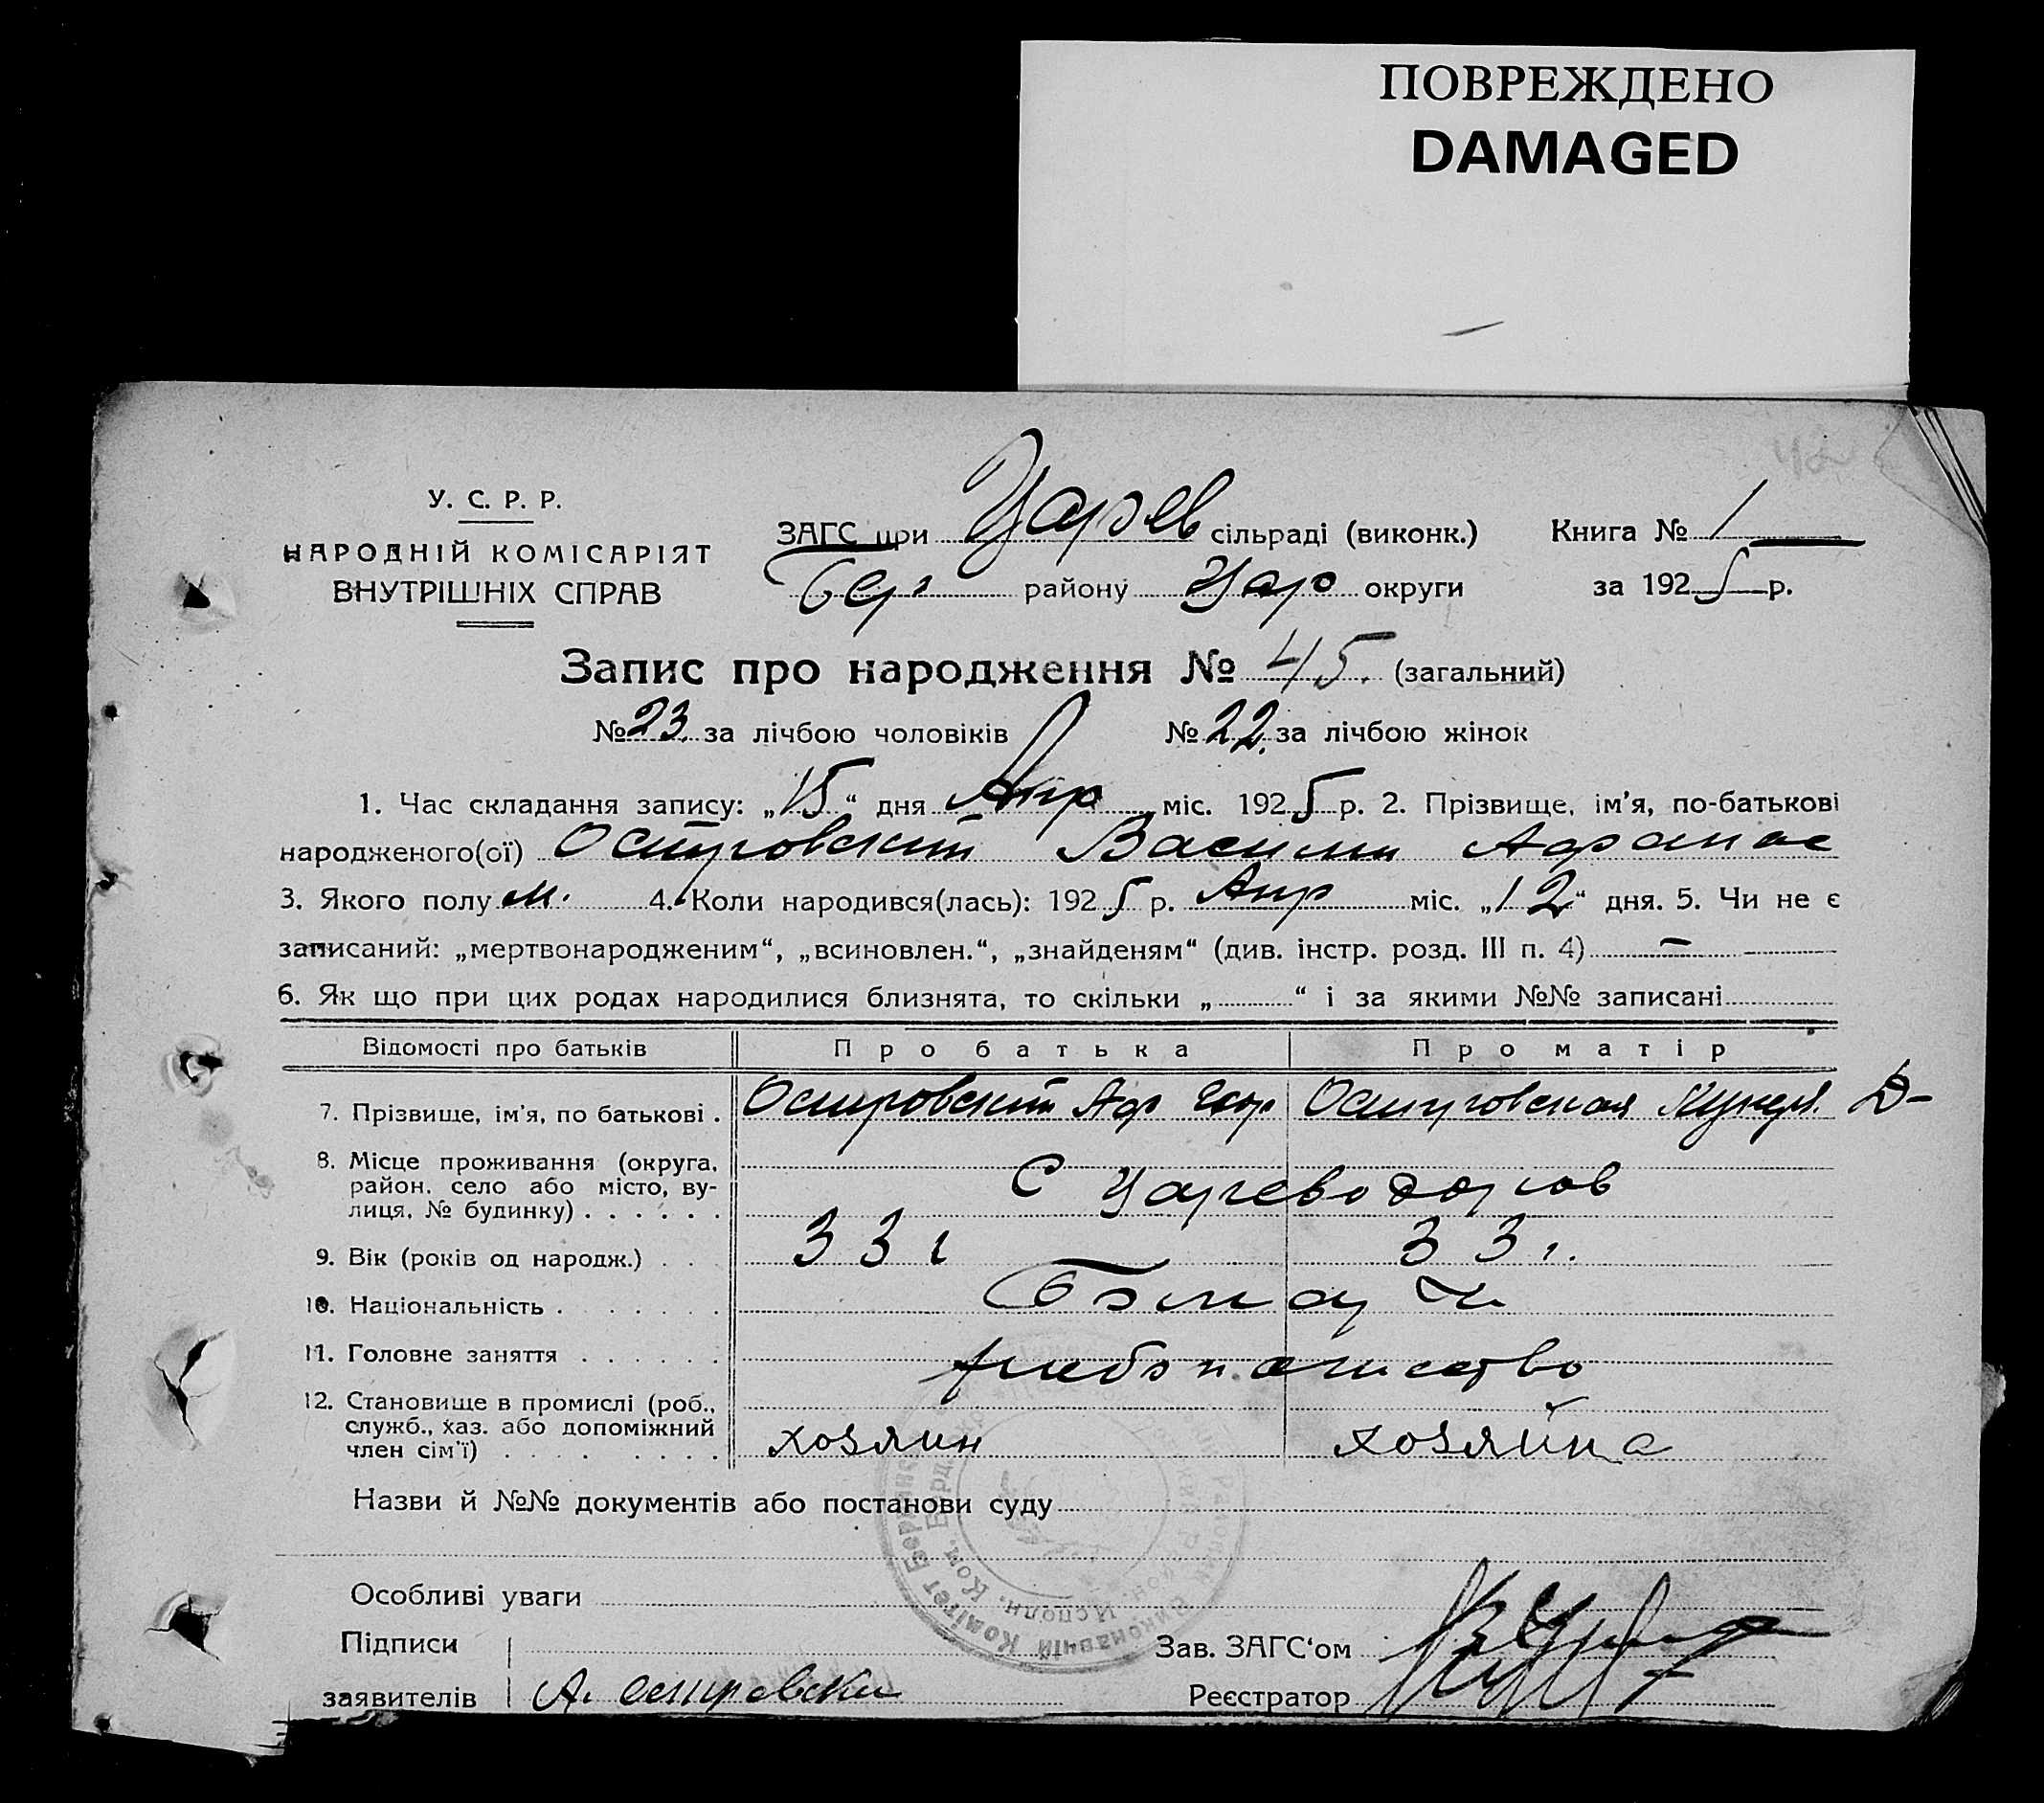 ПОВРЕЖДЕНО
DAMAGED
У. С. Р. Р.
НАРОДНІЙ КОМІСАРІЯТ
ВНУТРІШНІХ СПРАВ
ЗАГС при Царев сільраді (виконк.)
Бер районy Цар округи
Книга № 1
за 1925 р.
Запис про народження № 45. (загальний)
№ 23. за лічбою чоловіків № 22. за лічбою жінок
1. Час складання запису: „15“ дня Апр міс. 1925 р. 2. Прізвище, ім'я, по-батькові
народженого(ої) Островский Василий Афанас
3. Якого полу м. 4. Коли народився(лась): 1925 р. Апр міс. „12“ дня. 5. Чи не є
записаний: „мертвонародженим“, „всиновлен.“, „знайденям“ (див. інстр. розд. III п. 4) —
6. Як що при цих родах народилися близнята, то скільки „ “ і за якими №№ записані
Відомості про батьків Про батька Про матір
7. Прізвище, ім'я, по батькові . Островский Аф Островская Д-
8. Місце проживання (округа, район, село або місто, вулиця, № будинку) . . . . . . С Цареводаров
9. Вік (років од народж.) . . 33 г 33 г.
10. Національність . . . . . .
11. Головне заняття . . . . . . хлебопашество
12. Становище в промислі (роб., служб., хаз. або допоміжний член сім'ї) . . . . . . . . хозяин хозяйка
Назви й №№ документів або постанови суду
Особливі уваги
Підписи
заявителів А. Островски
Зав. ЗАГС‘ом
Реєстратор